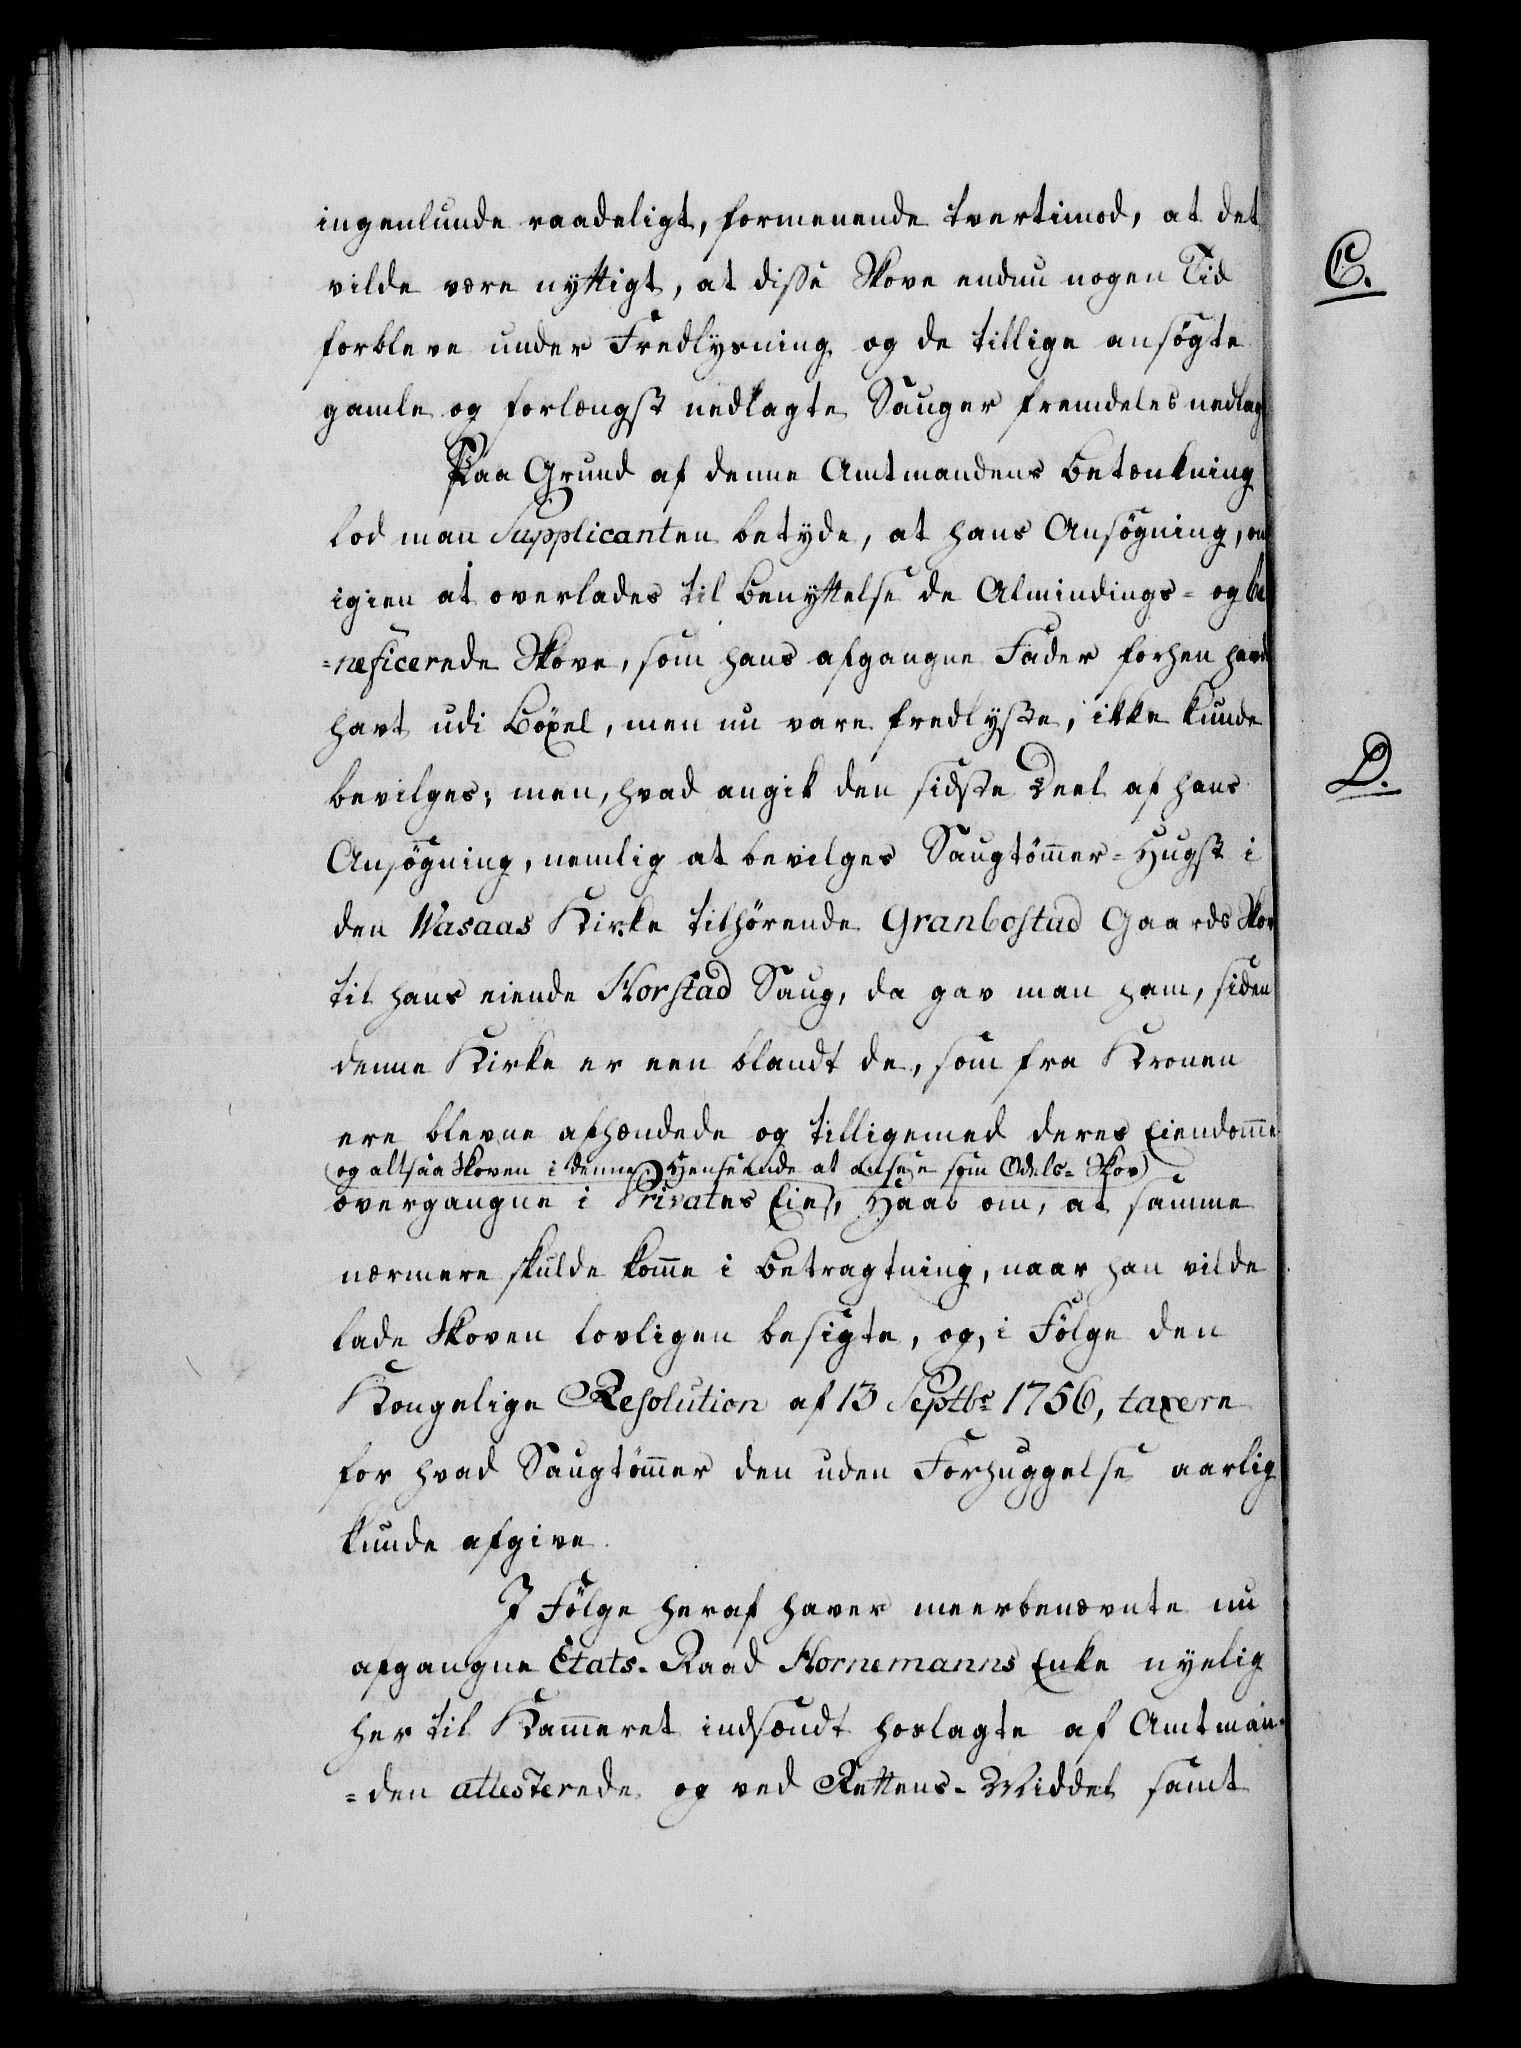 ingenlunde raadeligt, formenende tvertimod, at det
vilde være nyttigt, at disse Skove endnu nogen Tid
forbleve under Fredlysning og de tillige ansögte
gamle og forlængst nedlagte Sauger fremdeles nedlag
Paa Grund af denne Amtmandens Betænkning
lod man Supplicanten betyde, at hans Ansögning, om
igien at overlades til Benyttelse de Almindings- og be
=neficerede Skove, som hans afgangne Fader forhen havde
havt udi Böxel, men nu vare fredlyste, ikke kunde
bevilges; men, hvad angik den sidste Deel af hans
Ansögning, nemlig at bevilges Saugtömmer-Hugst i
den Wasaas Kirke tilhörende Granbostad Gaards Skov
til hans eiende Horstad Saug, da gav man ham, siden
denne Kirke er een blandt de, som fra Kronen
ere blevne afhændede og tilligemed deres Eiendomme
(og altsaa Skoven i denne Henseende at ansee som Odels-Skov)
overgangne i Privates Eie, Haab om, at samme
nærmere skulde komme i Betragtning, naar han vilde
lade Skoven lovligen besigte, og, i Fölge den
Kongelige Resolution af 13 Septbr 1756, taxere
for hvad Saugtömmer den uden Forhuggelse aarlig
kunde afgive.
I Fölge heraf haver meerbenævnte nu
afgangne Etats-Raad Hornemanns Enke nyelig
her til Kammeret indsændt hoslagte af Amtman-
=den attesterede og ved Rettens-Middel samt
C.
D.